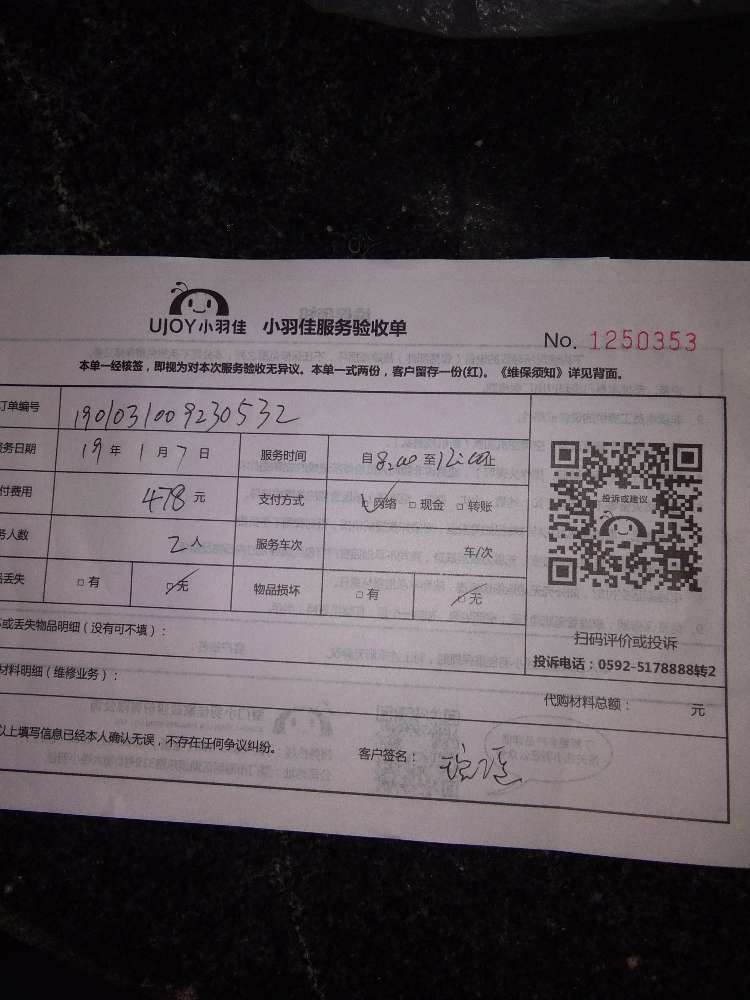 UJOY小羽佳 小羽佳服务验收单
No. 1250353
本单一经核签，即视为对本次服务验收无异议。本单一式两份，客户留存一份(红)。《维保须知》详见背面。
订单编号 1901031009230532
务日期 19年1月7日 服务时间 自8:00至12:00止
付费用 478元 支付方式 □网络 □现金 □转账
务人数 2人 服务车次 车/次
丢失 □有 □无 物品损坏 □有 □无
投诉或建议
或丢失物品明细（没有可不填）：
扫码评价或投诉
投诉电话：0592-5178888转2
材料明细（维修业务）：
代购材料总额： 元
以上填写信息已经本人确认无误，不存在任何争议纠纷。
客户签名：